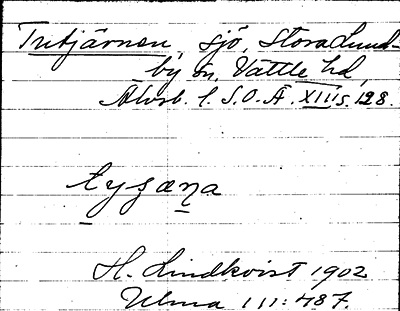 Tretjärnen, sjö, Stora Lund-
by sn, Vättle hd,
Älvsb. l. S.O.Ä. XIII s. 128.
tyʒæna
H. Lindkvist 1902
Ulma 111:487.